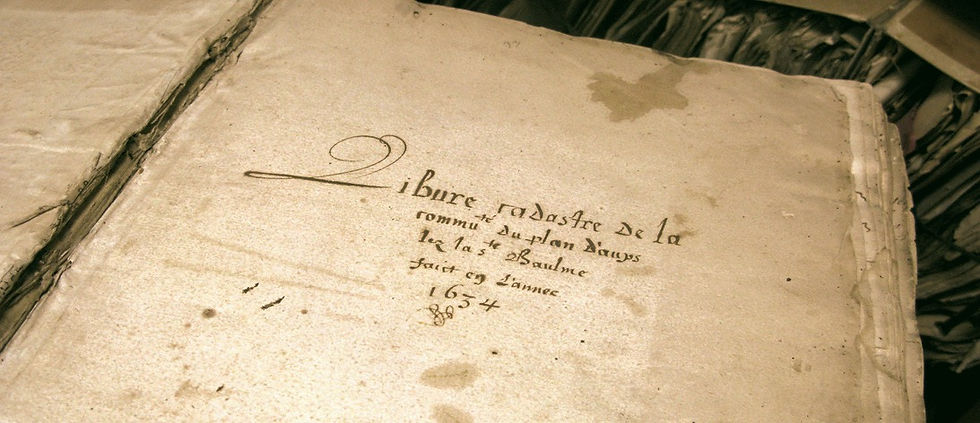 Libure cadastre de la
commu.té du plan d'aups
lez la s.te Baulme
faict en L'annee
1634